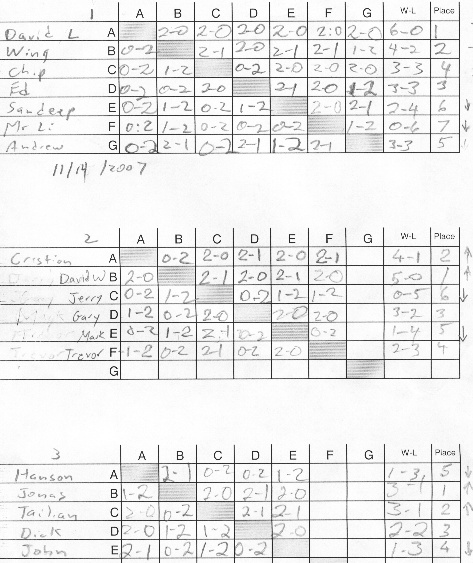 1 A B C D E F G W-L Place
David L A 2-0 2-0 2-0 2-0 2:0 2-0 6-0 1
Wing B 0-2 2-1 2-0 2-1 2-1 1-2 4-2 2
Chip C 0-2 1-2 0-2 2-0 2-0 2-0 3-3 4
Ed D 0-2 0-2 2-0 2-1 2-0 1-2 3-3 3
Sandeep E 0-2 1-2 0-2 1-2 2-0 2-1 2-4 6 ↓
Mr Li F 0:2 1-2 0-2 0-2 0-2 1-2 0-6 7 ↓
Andrew G 0-2 2-1 0-2 2-1 1-2 2-1 3-3 5
11/14/2007
2 A B C D E F G W-L Place
Cristian A 0-2 2-0 2-1 2-0 2-1 4-1 2 ↑
David W B 2-0 2-1 2-0 2-1 2-0 5-0 1 ↑
Jerry C 0-2 1-2 0-2 1-2 1-2 0-5 6 ↓
Gary D 1-2 0-2 2-0 2-0 2-0 3-2 3
Mark E 0-2 1-2 2-1 0-2 0-2 1-4 5 ↓
Trevor F 1-2 0-2 2-1 0-2 2-0 2-3 4
G
3 A B C D E F G W-L Place
Hanson A 2-1 0-2 0-2 1-2 1-3 5 ↓
Jonas B 1-2 2-0 2-1 2-0 3-1 1 ↑
Tailian C 2-0 0-2 2-1 2-1 3-1 2 ↑
Dick D 2-0 1-2 1-2 2-0 2-2 3
John E 2-1 0-2 1-2 0-2 1-3 4 ↓